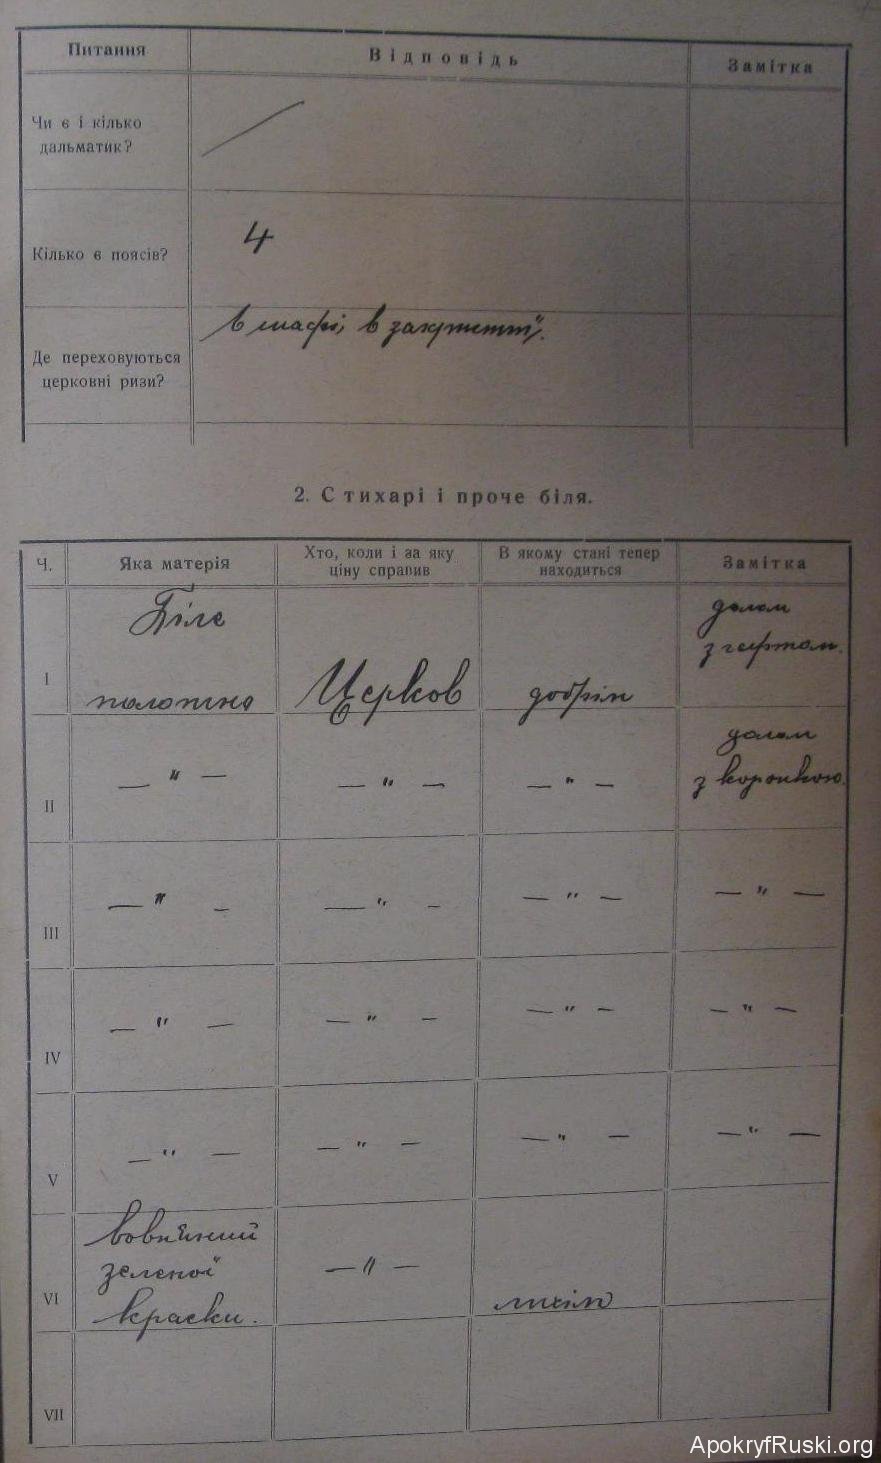 Питання Відповідь Замітка
Чи є і кілько
дальматик?
Кілько є поясів? 4
Де переховуються
церковні ризи?
в шафі, в закритті.
2. Стихарі і проче біля.
Ч. Яка матерія Хто, коли і за яку
ціну справив В якому стані тепер
находиться Замітка
I Біле
полотно Церков добрім долом
з гафтом.
II — " — — " — — " — долом
з коронкою.
III — " — — " — — " — — " —
IV — " — — " — — " — — " —
V — " — — " — — " — — " —
VI вовняний
зеленої
краски. — " — лихім
VII
ApokryfRuski.org